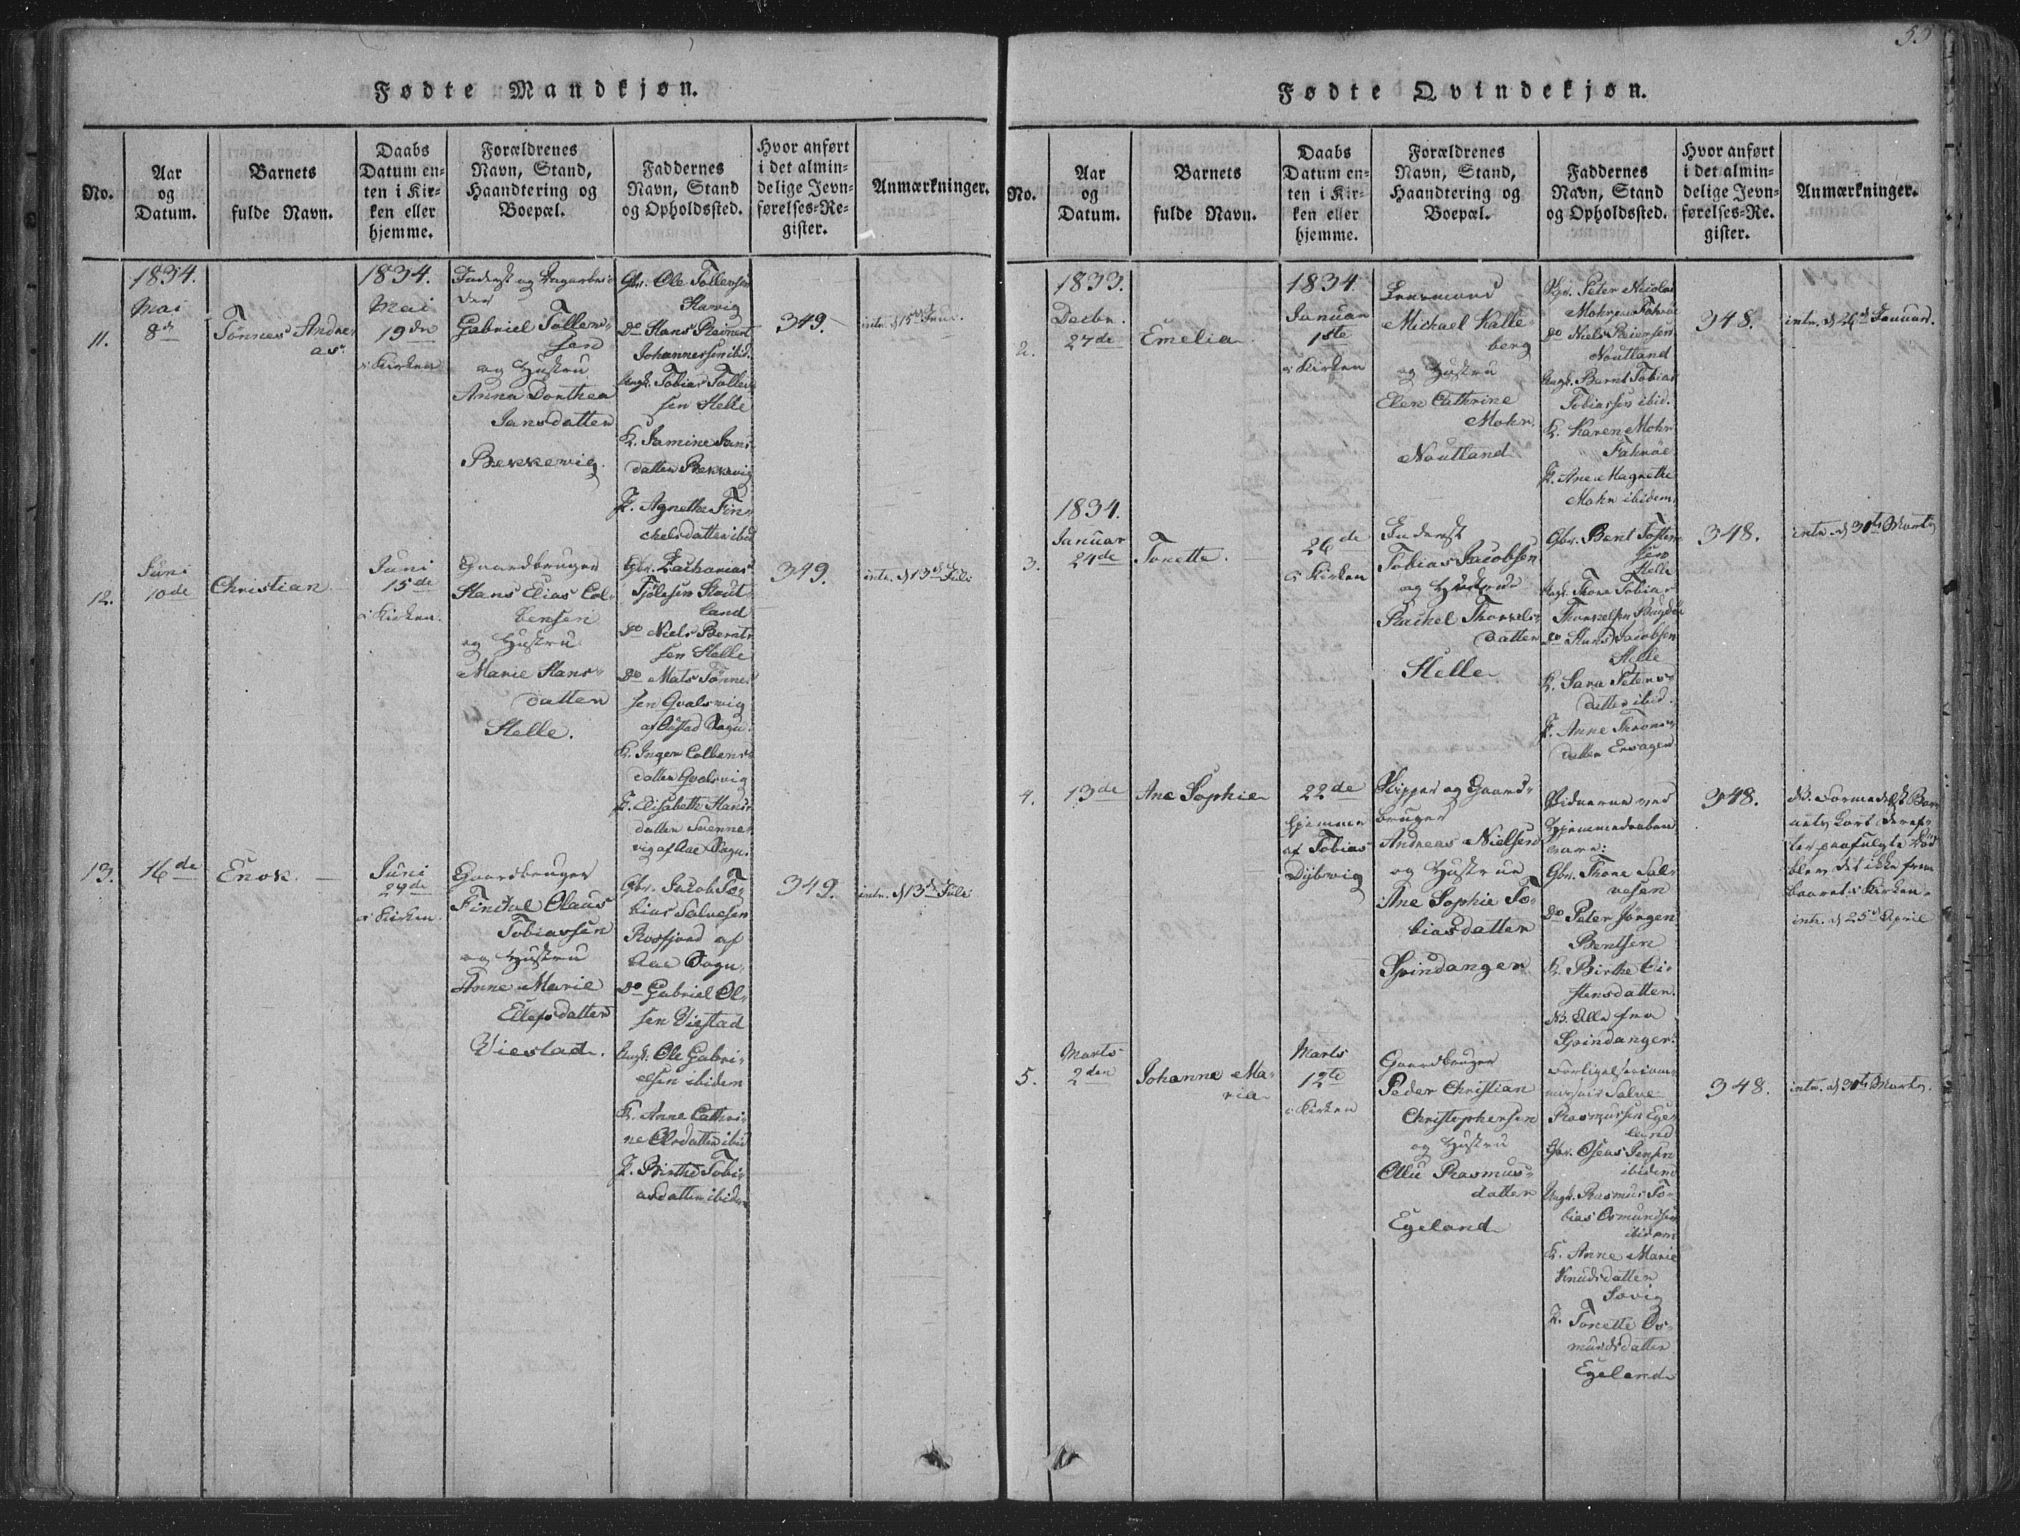 53
Fødte Mandkjøn.
No.
Aar
og
Datum.
Barnets
fulde Navn.
Daabs
Datum en-
ten i Kir-
ken eller
hjemme.
Forældrenes
Navn, Stand,
Haandtering og
Boepæl.
Faddernes
Navn, Stand
og Opholdssted.
Hvor anført
i det almin-
delige Jevn-
førelses-Re-
gister.
Anmærkninger.
11.
1834.
Mai
8de
Tønnes Andre-
as
1834.
Mai
19de
i Kirken
Inderst og
Gabriel Tollev-
sen
og Hustru
Anna Dorthea
Jansdatter
Bekkevig.
Gbr. Ole Tollevsen
do Hans Bernert
Johannessen ibid.
Ungk. Tobias Tollev-
sen Helle
K. Jamine Jans-
datter Bekkevig
P. Agnethe Tin-
datter ibid
349.
12.
Juni
10de
Christian
Juni
15de
i Kirken.
Gaardbruger
Hans Elias Col-
bensen
og Hustru
Marie Hans-
datter
Helle.
Gbr. Zacharias
do Niels Bernt-
sen Helle
do Mats Tønne-
sen Qvalsvig
af Sogn.
K. Inger Colbens-
datter Qvalsvig
P. Elisabeth Hans-
datter Svenne-
vig af Aae Sogn.
349.
intr. d 13de Juli
13.
16de
Enok.
Juni
29de
i Kirken.
Gaardbruger
Olaus
Tobiassen
og Hustru
Anne Marie
Ellefsdatter
Viestad.
Gbr. Jacob To-
bias Salvesen
Rosfjord af
Aae Sogn.
do Gabriel Ol-
sen Viestad
Ungk. Ole Gabri-
elsen ibidem
K. Anne Cathri-
ne Olsdatter ibid
P. Birthe Tobi-
asdatter ibidem
349.
intr. d 13de Juli
Fødte Qvindekjøn.
No.
Aar
og
Datum.
Barnets
fulde Navn.
Daabs
Datum en-
ten i Kir-
ken eller
hjemme.
Forældrenes
Navn, Stand,
Haandtering og
Boepæl.
Faddernes
Navn, Stand
og Opholdssted.
Hvor anført
i det almin-
delige Jevn-
førelses-Re-
gister.
Anmærkninger.
2.
1833.
Decbr.
27de
Emelia
1834.
Januar
1ste
i Kirken
Lensmand
Michael Kalle-
berg
og Hustru
Elen Cathrine
Mohr.
Noutland.
Peter Nicolai
Mohr
do Niels
Noutland
Ungk. Bernt Tobias
Tobiassen ibid.
K. Karen Mohr
P. Ane Magrethe
Mohr ibidem.
348.
intr. d 26de Januar.
3.
1834.
Januar
24de
Tonette.
26de
i Kirken
Inderst
Tobias Jacobsen
og Hustrue
Rachel Thorkels-
datter
Helle
Gbr. Bent
sen
Helle
Ungk. Thore Tobias
Thorkelsen
do Hans Jacobsen
Helle
K. Sara Peters-
datter ibid.
P. Anne
datter
348.
intr. d 31te Marts
4.
13de
Ane Sophie
22de
hjemme
af Tobias
Dybvig
Skipper og Gaard-
bruger
Andreas Nielsen
og Hustrue
Ane Sophie To-
biasdatter
Spindanger
Vidnerne ved
Hjemmedaaben
vare:
Gbr. Thore Sal-
vesen
do Peter Jørgen
Bentsen
K. Birthe
stensdatter.
NB. Alle fra
Spindanger.
348.
NB. Formedelst Bar-
nets kort deref-
ter paafulgte Død
blev det ikke frem-
baaret i Kirken.
intr. d 25de April
5.
Marts
2den
Johanne Ma-
ria
Marts
12te
i Kirken
Gaardbruger
Peder Christian
Christophersen
og Hustru
Ollu Rasmus-
datter
Egeland
Forligelsescom-
missair Salve
Rasmussen Ege-
land
Gbr. Oseas Jensen
ibidem
Ungk. Rasmus To-
bias Osmundsen
ibidem
K. Anne Marie
Knudsdatter
P. Tonette Os-
mundsdatter
Egeland
348.
intr. d 31te Marts.